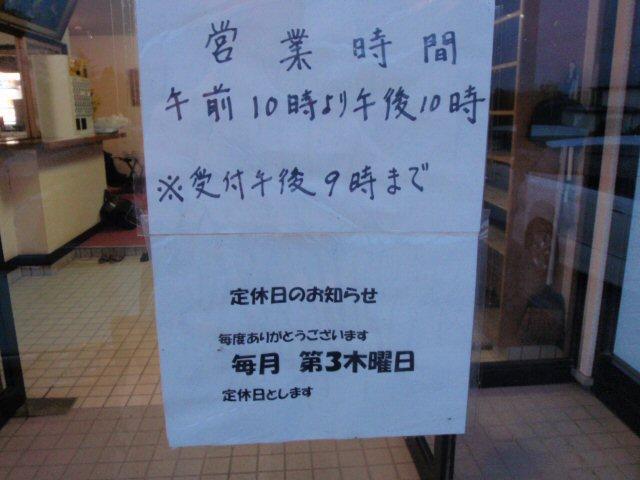 営業時間
午前10時より午後10時
※受付午後9時まで
定休日のお知らせ
毎度ありがとうございます
毎月 第3木曜日
定休日とします